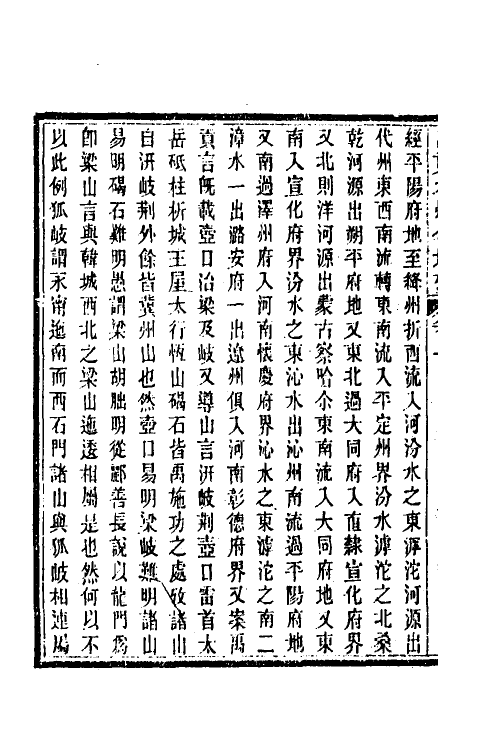 經平陽府地至絳州折西流入河汾水之東滹沱河源出
代州東西南流轉東南流入平定州界汾水滹沱之北桑
乾河源出朔平府地又東北過大同府入直隸宣化府界
又北則洋河源出蒙古察哈尒東南流入大同府地又東
南入宣化府界汾水之東沁水出沁州南流過平陽府地
又南過澤州府入河南懷慶府界沁水之東滹沱之南二
漳水一出潞安府一出遼州俱入河南彰德府界又案禹
貢言旣載壺口治梁及岐又導山言汧岐荆壺口雷首太
岳砥柱析城王屋太行恆山碣石皆禹施功之處攷諸山
自汧岐荆外餘皆冀州山也然壺口易明梁岐難明諸山
易明碣石難明愚謂梁山胡朏明從酈善長說以龍門爲
卽梁山言與韓城西北之梁山迤逶相屬是也然何以不
以此例狐岐謂永甯迤南而西石門諸山與狐岐相連屬